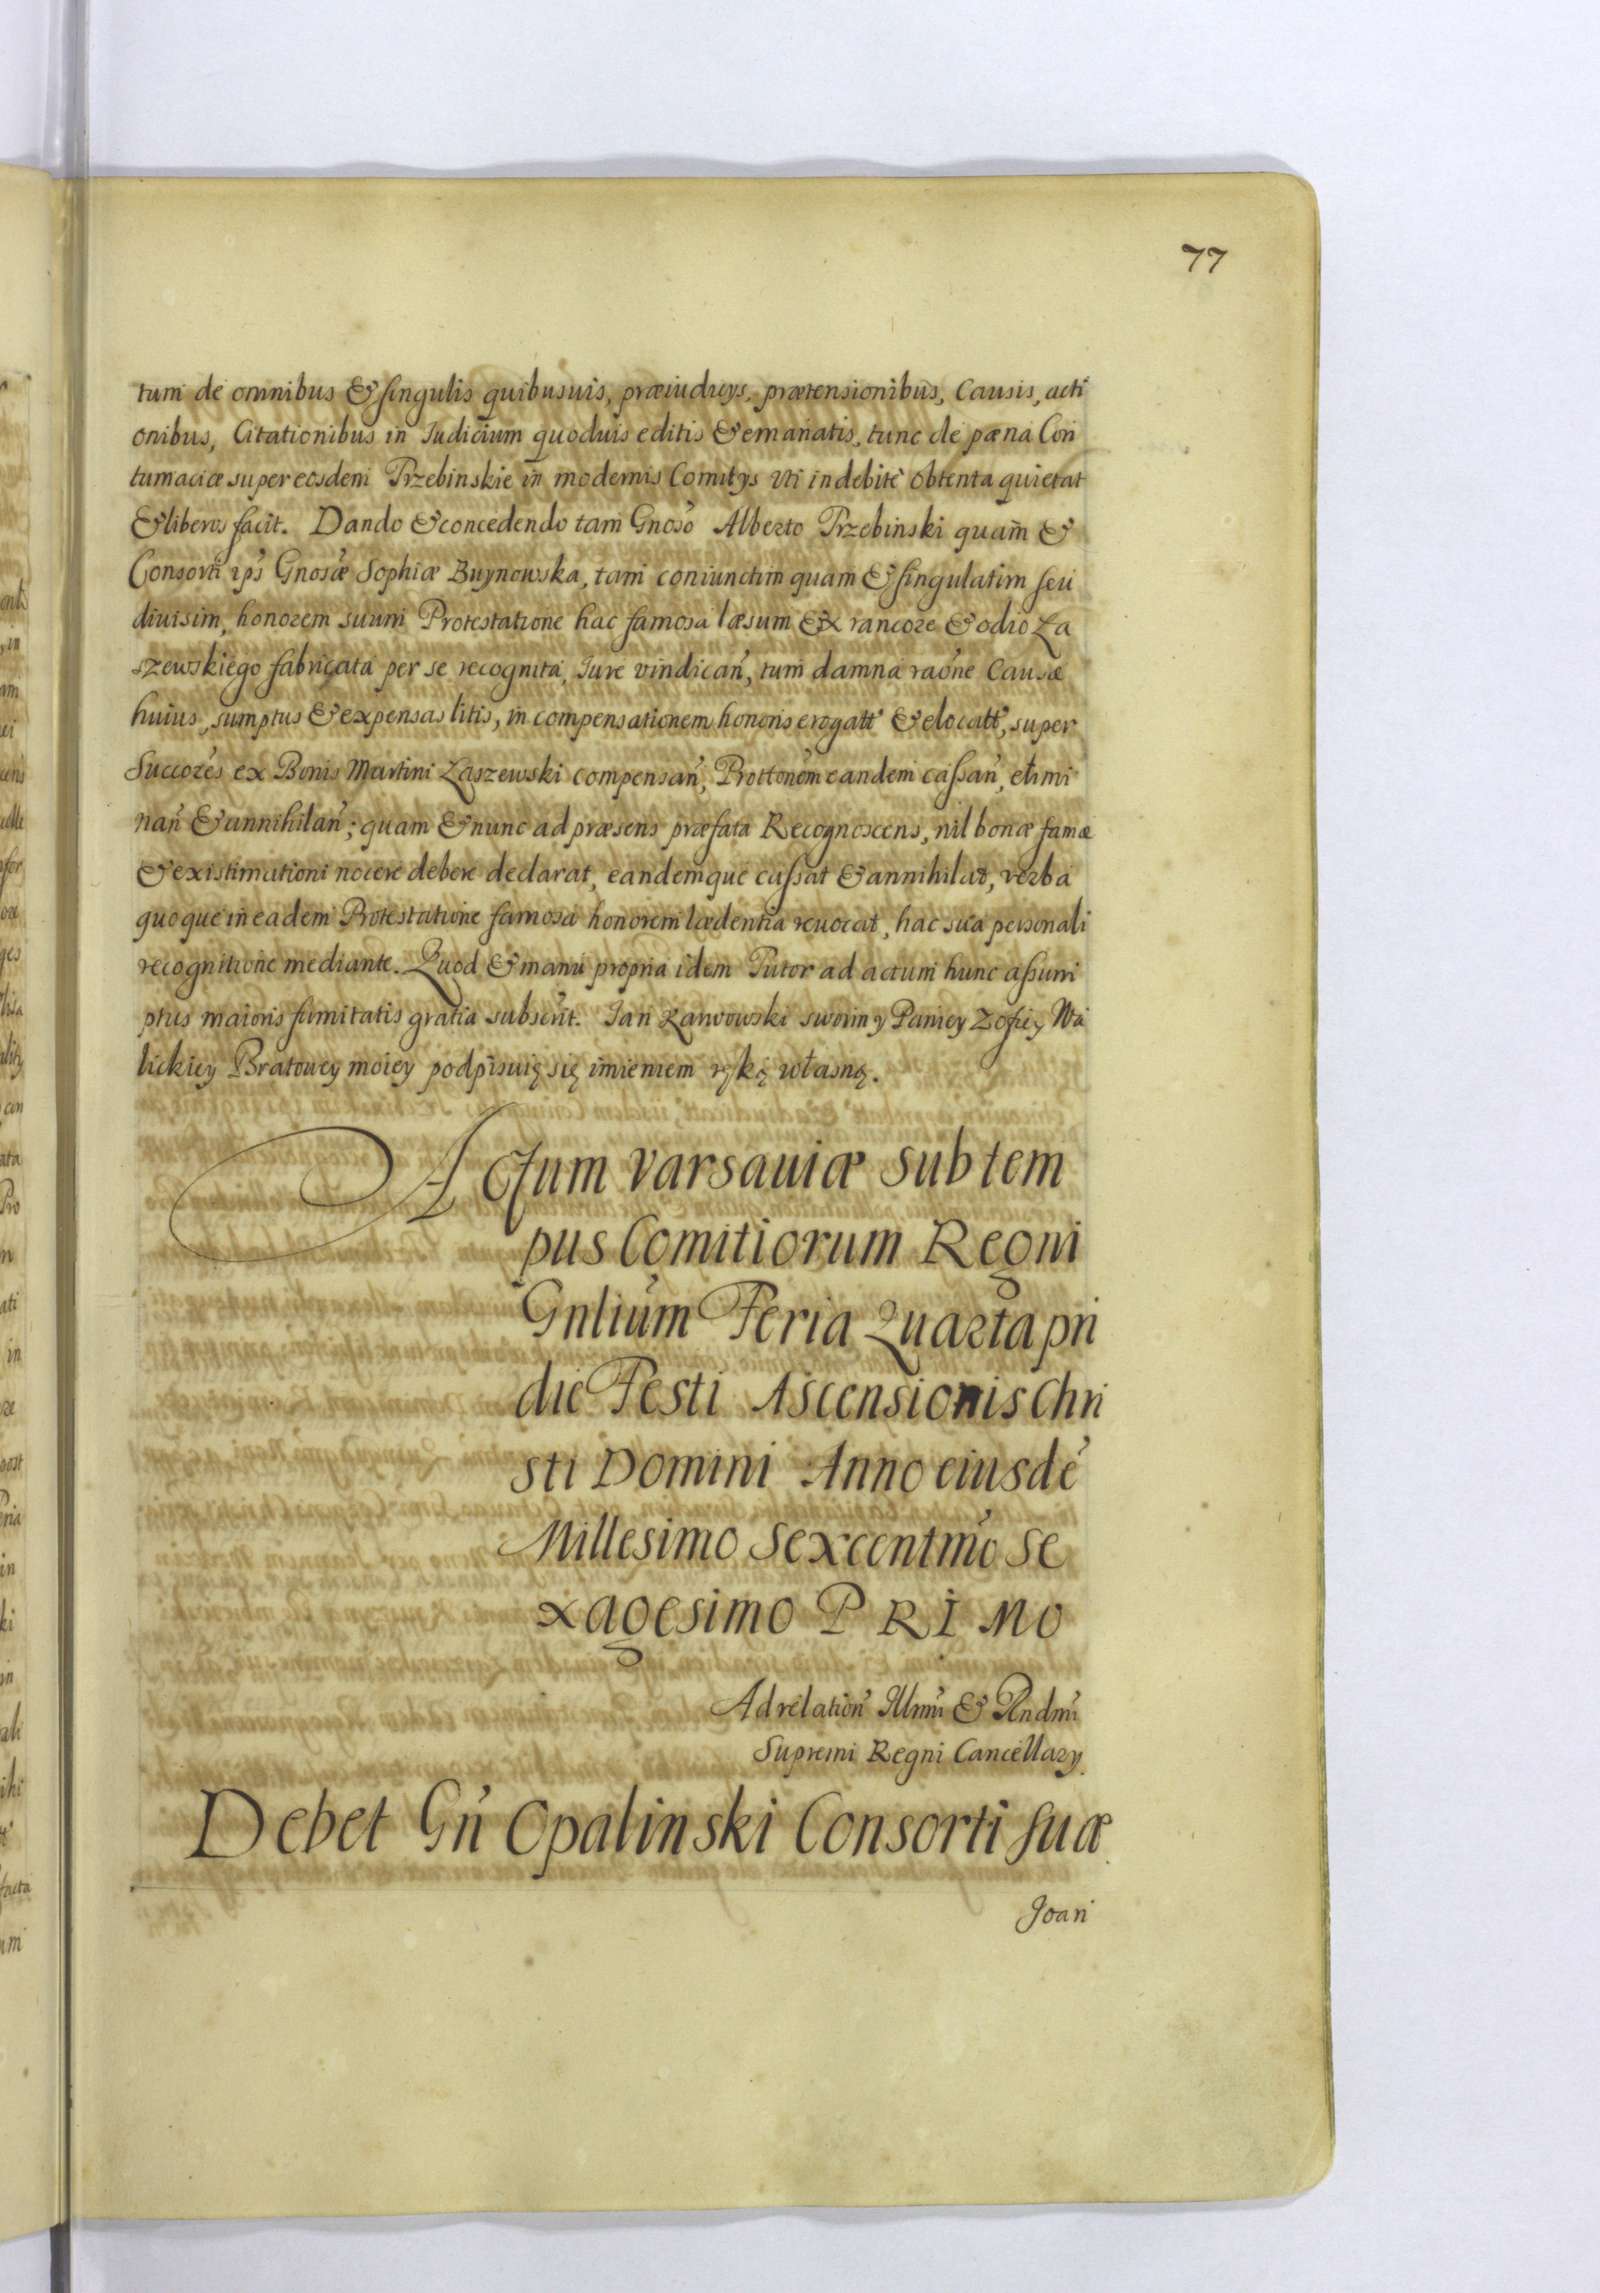 77
tum de omnibus & singulis quibusuis, præiudicys, prætensionibus, Causis, acti
onibus, Citationibus in Iudicium quoduis editis & emanatis, tunc de pæna Con
tumaciæ super eosdem Przebinskie in modernis Comitys vti indebitè obtenta quietat
& liberos facit. Dando & concedendo tam Gnoso Alberto Przebinski quam &
Consorti ips Gnosæ Sophiæ Buynowska, tam coniunctim quam & singulatim seu
diuisim, honorem suum Protestatione hac famosa læsum & ex rancore & odio Za
szewskiego fabricata per se recognita, Iure vindicañ, tum damna raõne Causæ
huius, sumptus & expensas litis, in compensationem honoris erogatt & elocatt, super
Succores ex Bonis Martini Zaszewski compensañ, Prottonem eandem cassañ, elimi
nañ & annihilañ; quam & nunc ad præsens præfata Recognoscens, nil bonæ famæ
& existimationi nocere debere declarat, eandemque cassat & annihilat, verba
quoque in eadem Protestatione famosa honorem lædentia reuocat, hac sua personali
recognitione mediante. Quod & manu propria idem Tutor ad actum hunc assum
ptus maioris firmitatis gratia subscrit. Jan Karwowski swoim y Paniey Zofiey Wa
lickiey Bratowey moiey podpisuię się imieniem ręką własną.
Actum Varsauiæ sub tem
pus Comitiorum Regni
Gnlium Feria Quarta pri
die Festi Ascensionis Chri
sti Domini Anno eiusdē
Millesimo Sexcentmo Se
xagesimo PRIMO
Ad relation Illmi & Rndmi
Supremi Regni Cancellary
Debet Gñ Opalinski Consorti suæ
Joan